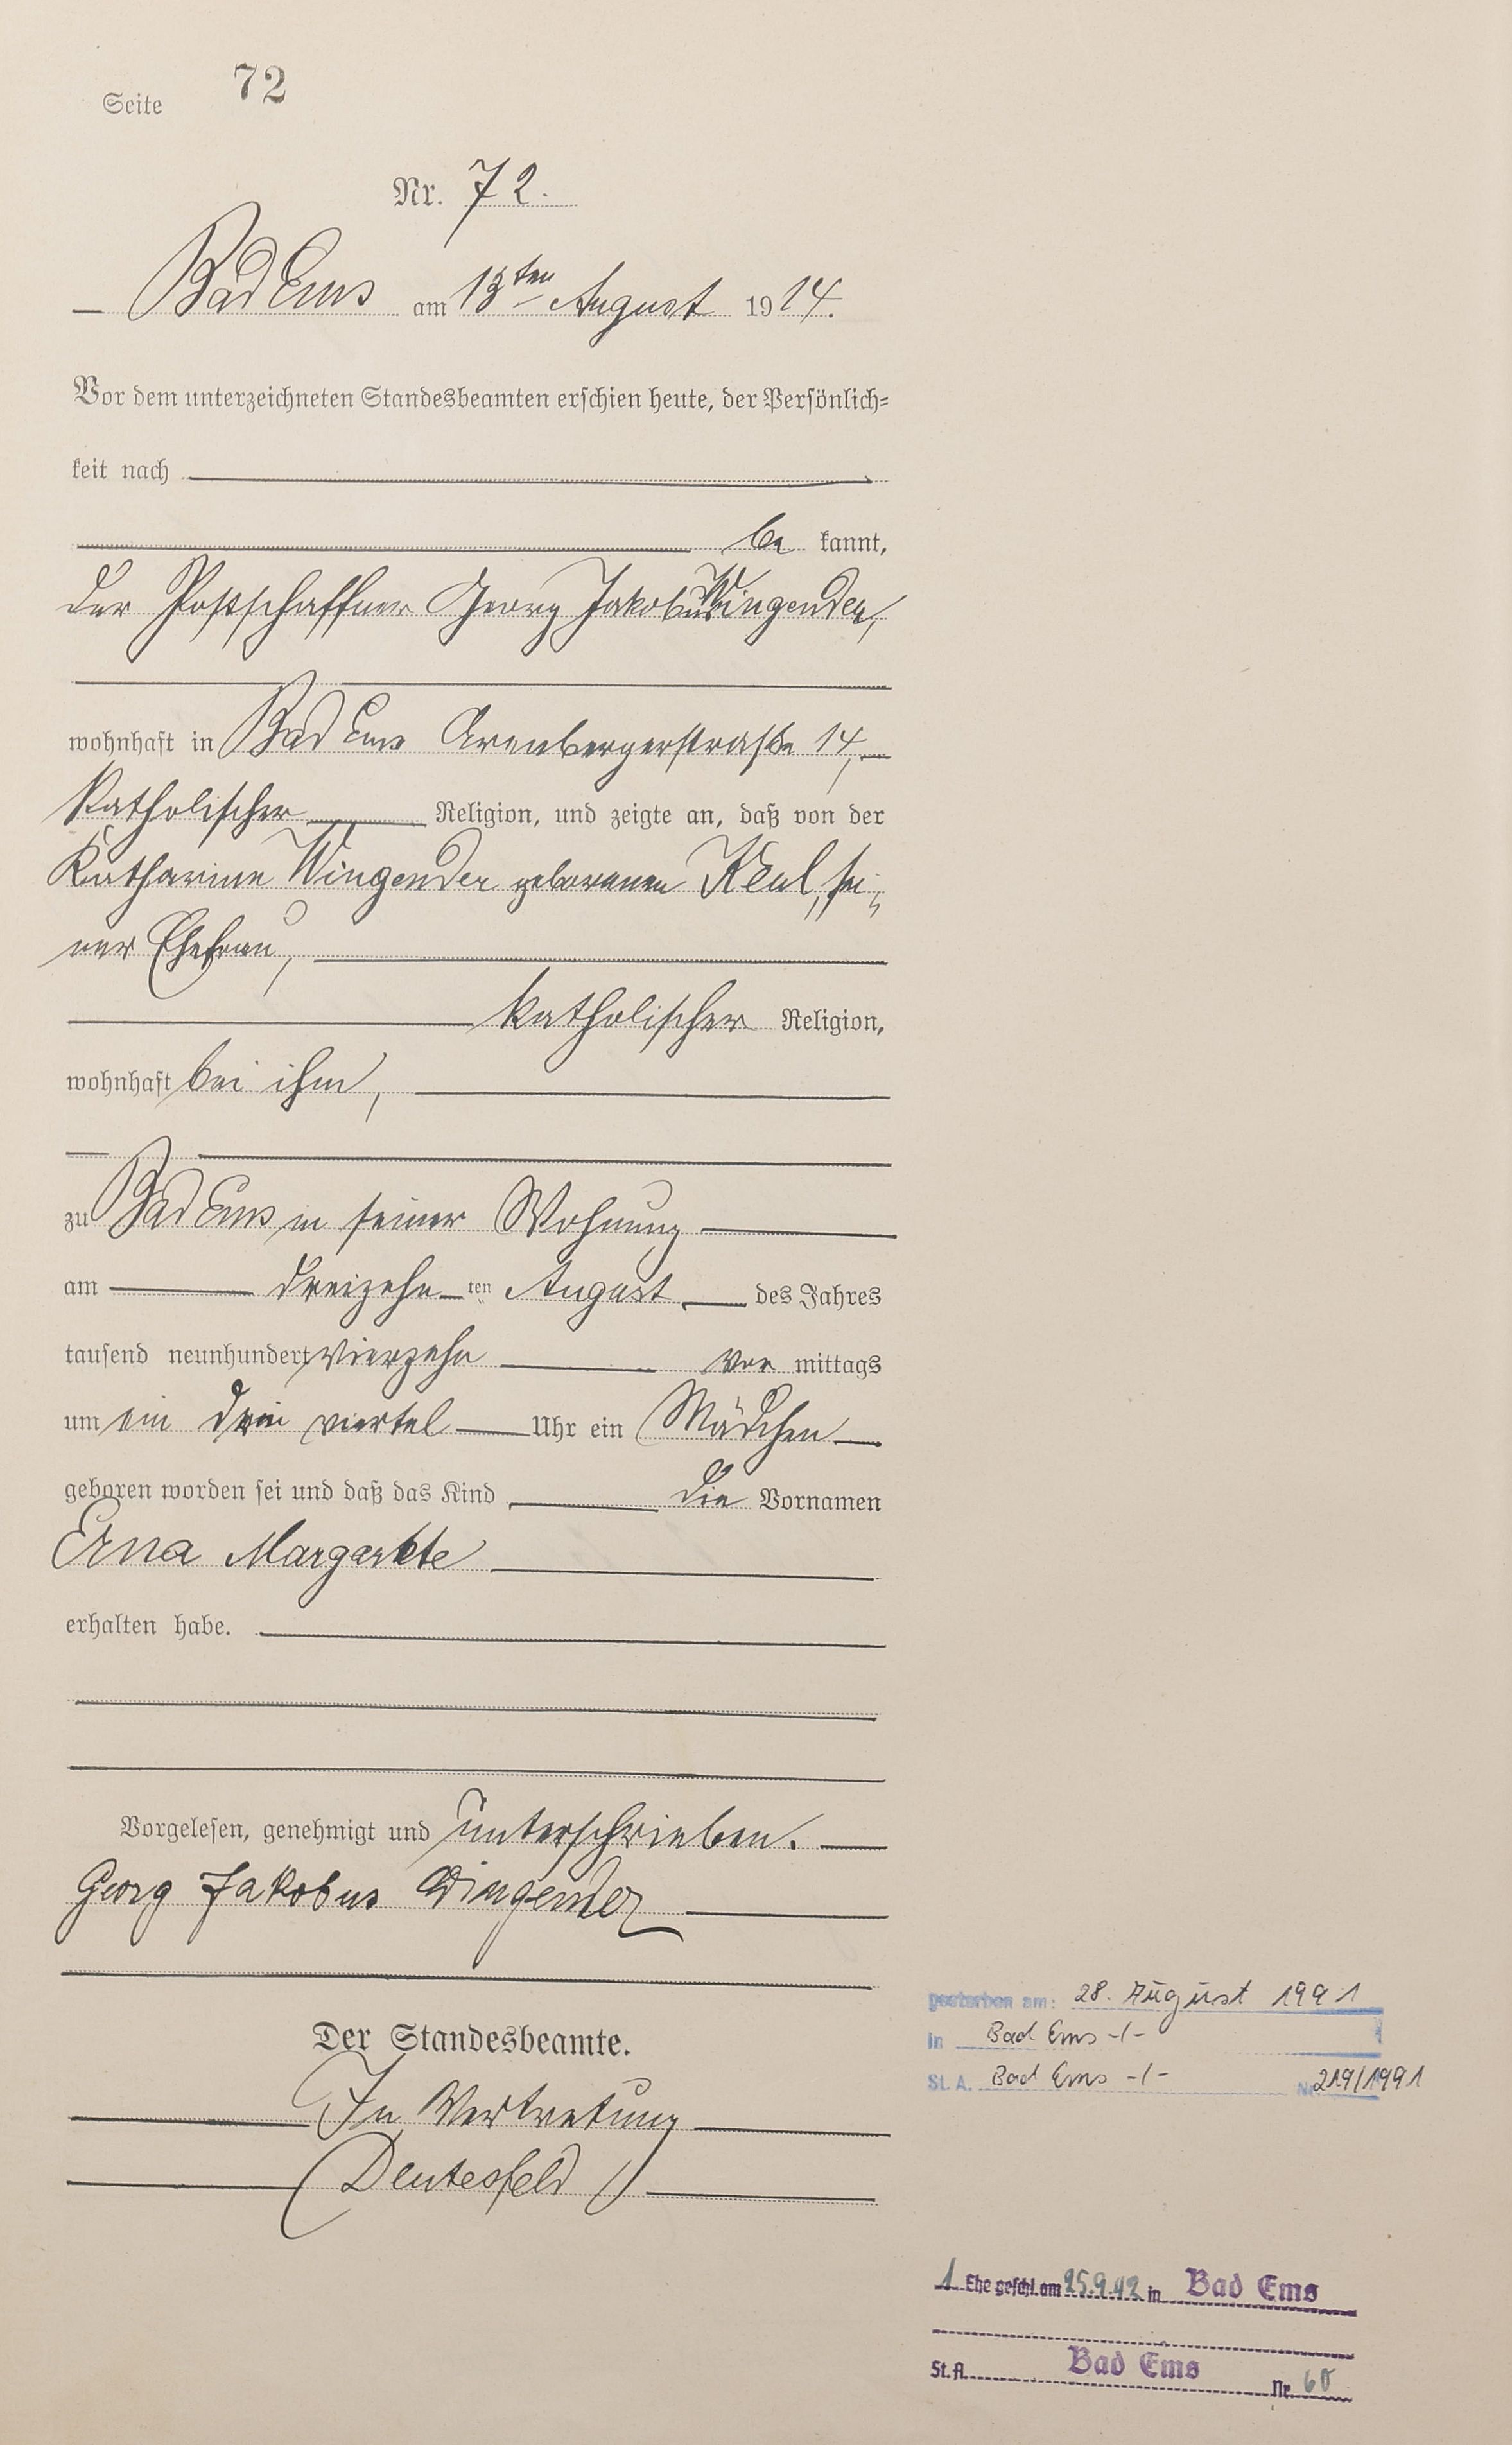 Seite 72
Nr. 72.
Bad Ems am 13ten August 1914.
Vor dem unterzeichneten Standesbeamten erschien heute, der Persönlich-
keit nach
be kannt,
der Postschaffner Georg Jakobus Wingender,
wohnhaft in Bad Ems Arenbergerstraße 14,
katholischer Religion, und zeigte an, daß von der
Katharina Wingender geborenen Keul, sei-
ner Ehefrau,
katholischer Religion,
wohnhaft bei ihm,
zu Bad Ems in seiner Wohnung
am dreizehn ten August des Jahres
tausend neunhundert vierzehn vor mittags
um ein drei viertel Uhr ein Mädchen
geboren worden sei und daß das Kind die Vornamen
Erna Margarete
erhalten habe.
Vorgelesen, genehmigt und unterschrieben.
Georg Jakobus Wingender
Der Standesbeamte.
In Vertretung
Deutesfeld
gestorben am: 28. August 1991
in Bad Ems -/-
St. A. Bad Ems -/- Nr. 219/1991
1 Ehe geschl. am 25.9.42 in Bad Ems
St. A. Bad Ems Nr. 60